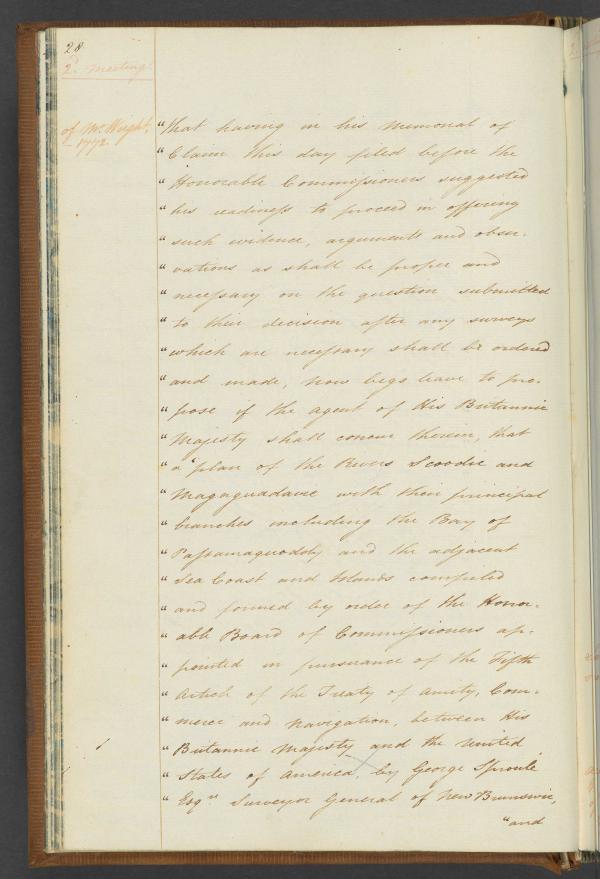 28
2d. Meeting.
of Mr. Wright,
1772.
"that having in his Memorial of
"Claim this day filed before the
"Honorable Commissioners suggested
"his readiness to proceed in offering
"such evidence, arguments and obser-
"vations as shall be proper and
"necessary on the question submitted
"to their decision after any surveys
"which are necessary shall be ordered
"and made, now begs leave to pro-
"pose if the agent of His Britannic
"Majesty shall concur therein, that
"a plan of the Rivers Scoodic and
"Magaguadavic with their principal
"branches including the Bay of
"Passamaquoddy and the adjacent
"Sea Coast and Islands compiled
"and formed by order of the Honor-
"able Board of Commissioners ap-
"pointed in pursuance of the Fifth
"Article of the Treaty of Amity, Com-
"merce and Navigation, between His
"Britannic Majesty and the United
"States of America, by George Sproule
"Esqr. Surveyor General of New Brunswic,
"and